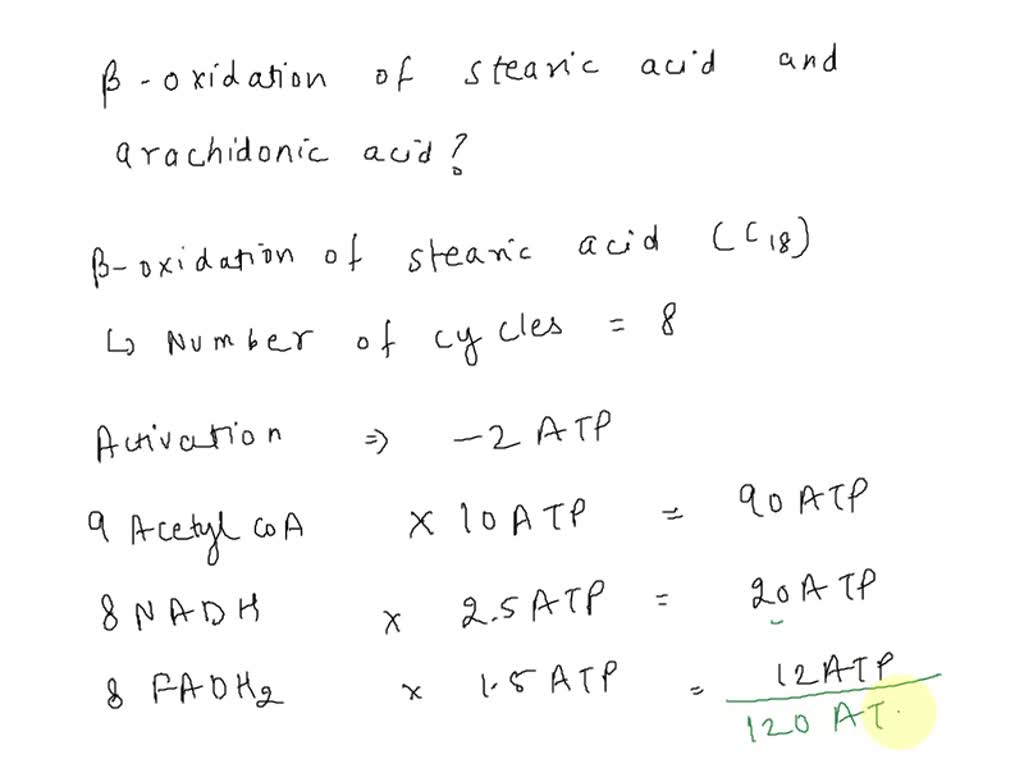 β-oxidation of stearic acid and
arachidonic acid?
β-oxidation of stearic acid (C18)
↳ Number of cycles = 8
Activation ⇒ -2 ATP
9 Acetyl CoA × 10 ATP = 90 ATP
8 NADH × 2.5 ATP = 20 ATP
8 FADH2 × 1.5 ATP = 12 ATP
120 AT